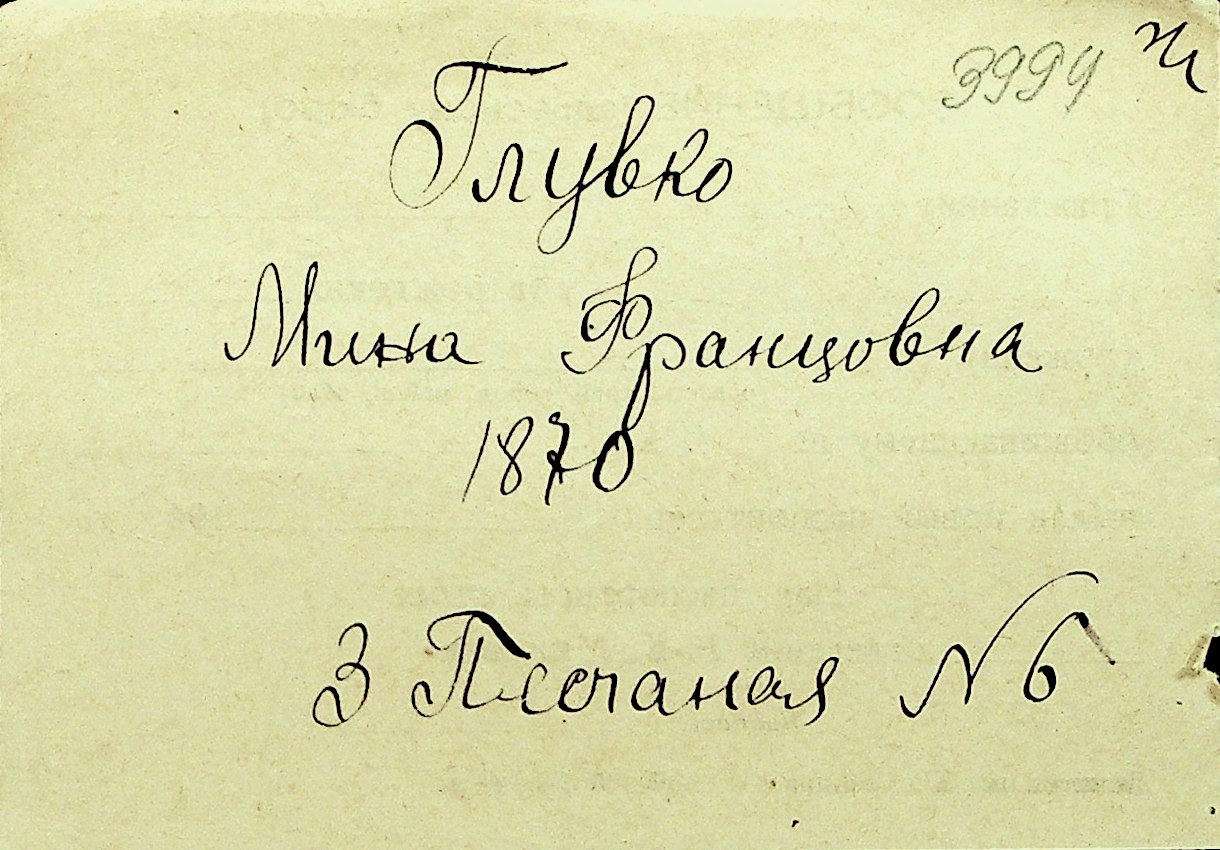 3994 ж
Глувко
Мина Францовна
1870
3 Песчаная N 6